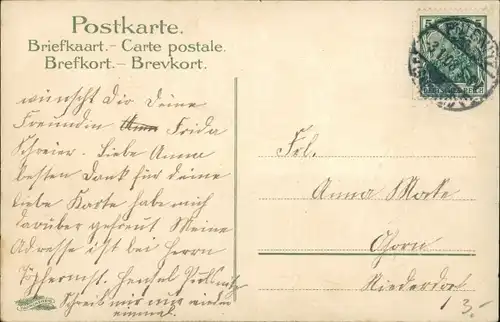 Postkarte.
Briefkaart.- Carte postale.
Brefkort.- Brevkort.
5 5
DEUTSCHES REICH
wünscht Dir Deine
Freundin Frida
Schreier. Liebe Anna
besten Dank für Deine
liebe Karte habe mich
darüber gefreut Meine
Adresse ist bei Herrn
Töpfermst. Hentel Pulsnitz
Schreib mir nur wieder
einmal.
Frl.
Anna
Ohorn
Niederdorf
3.-